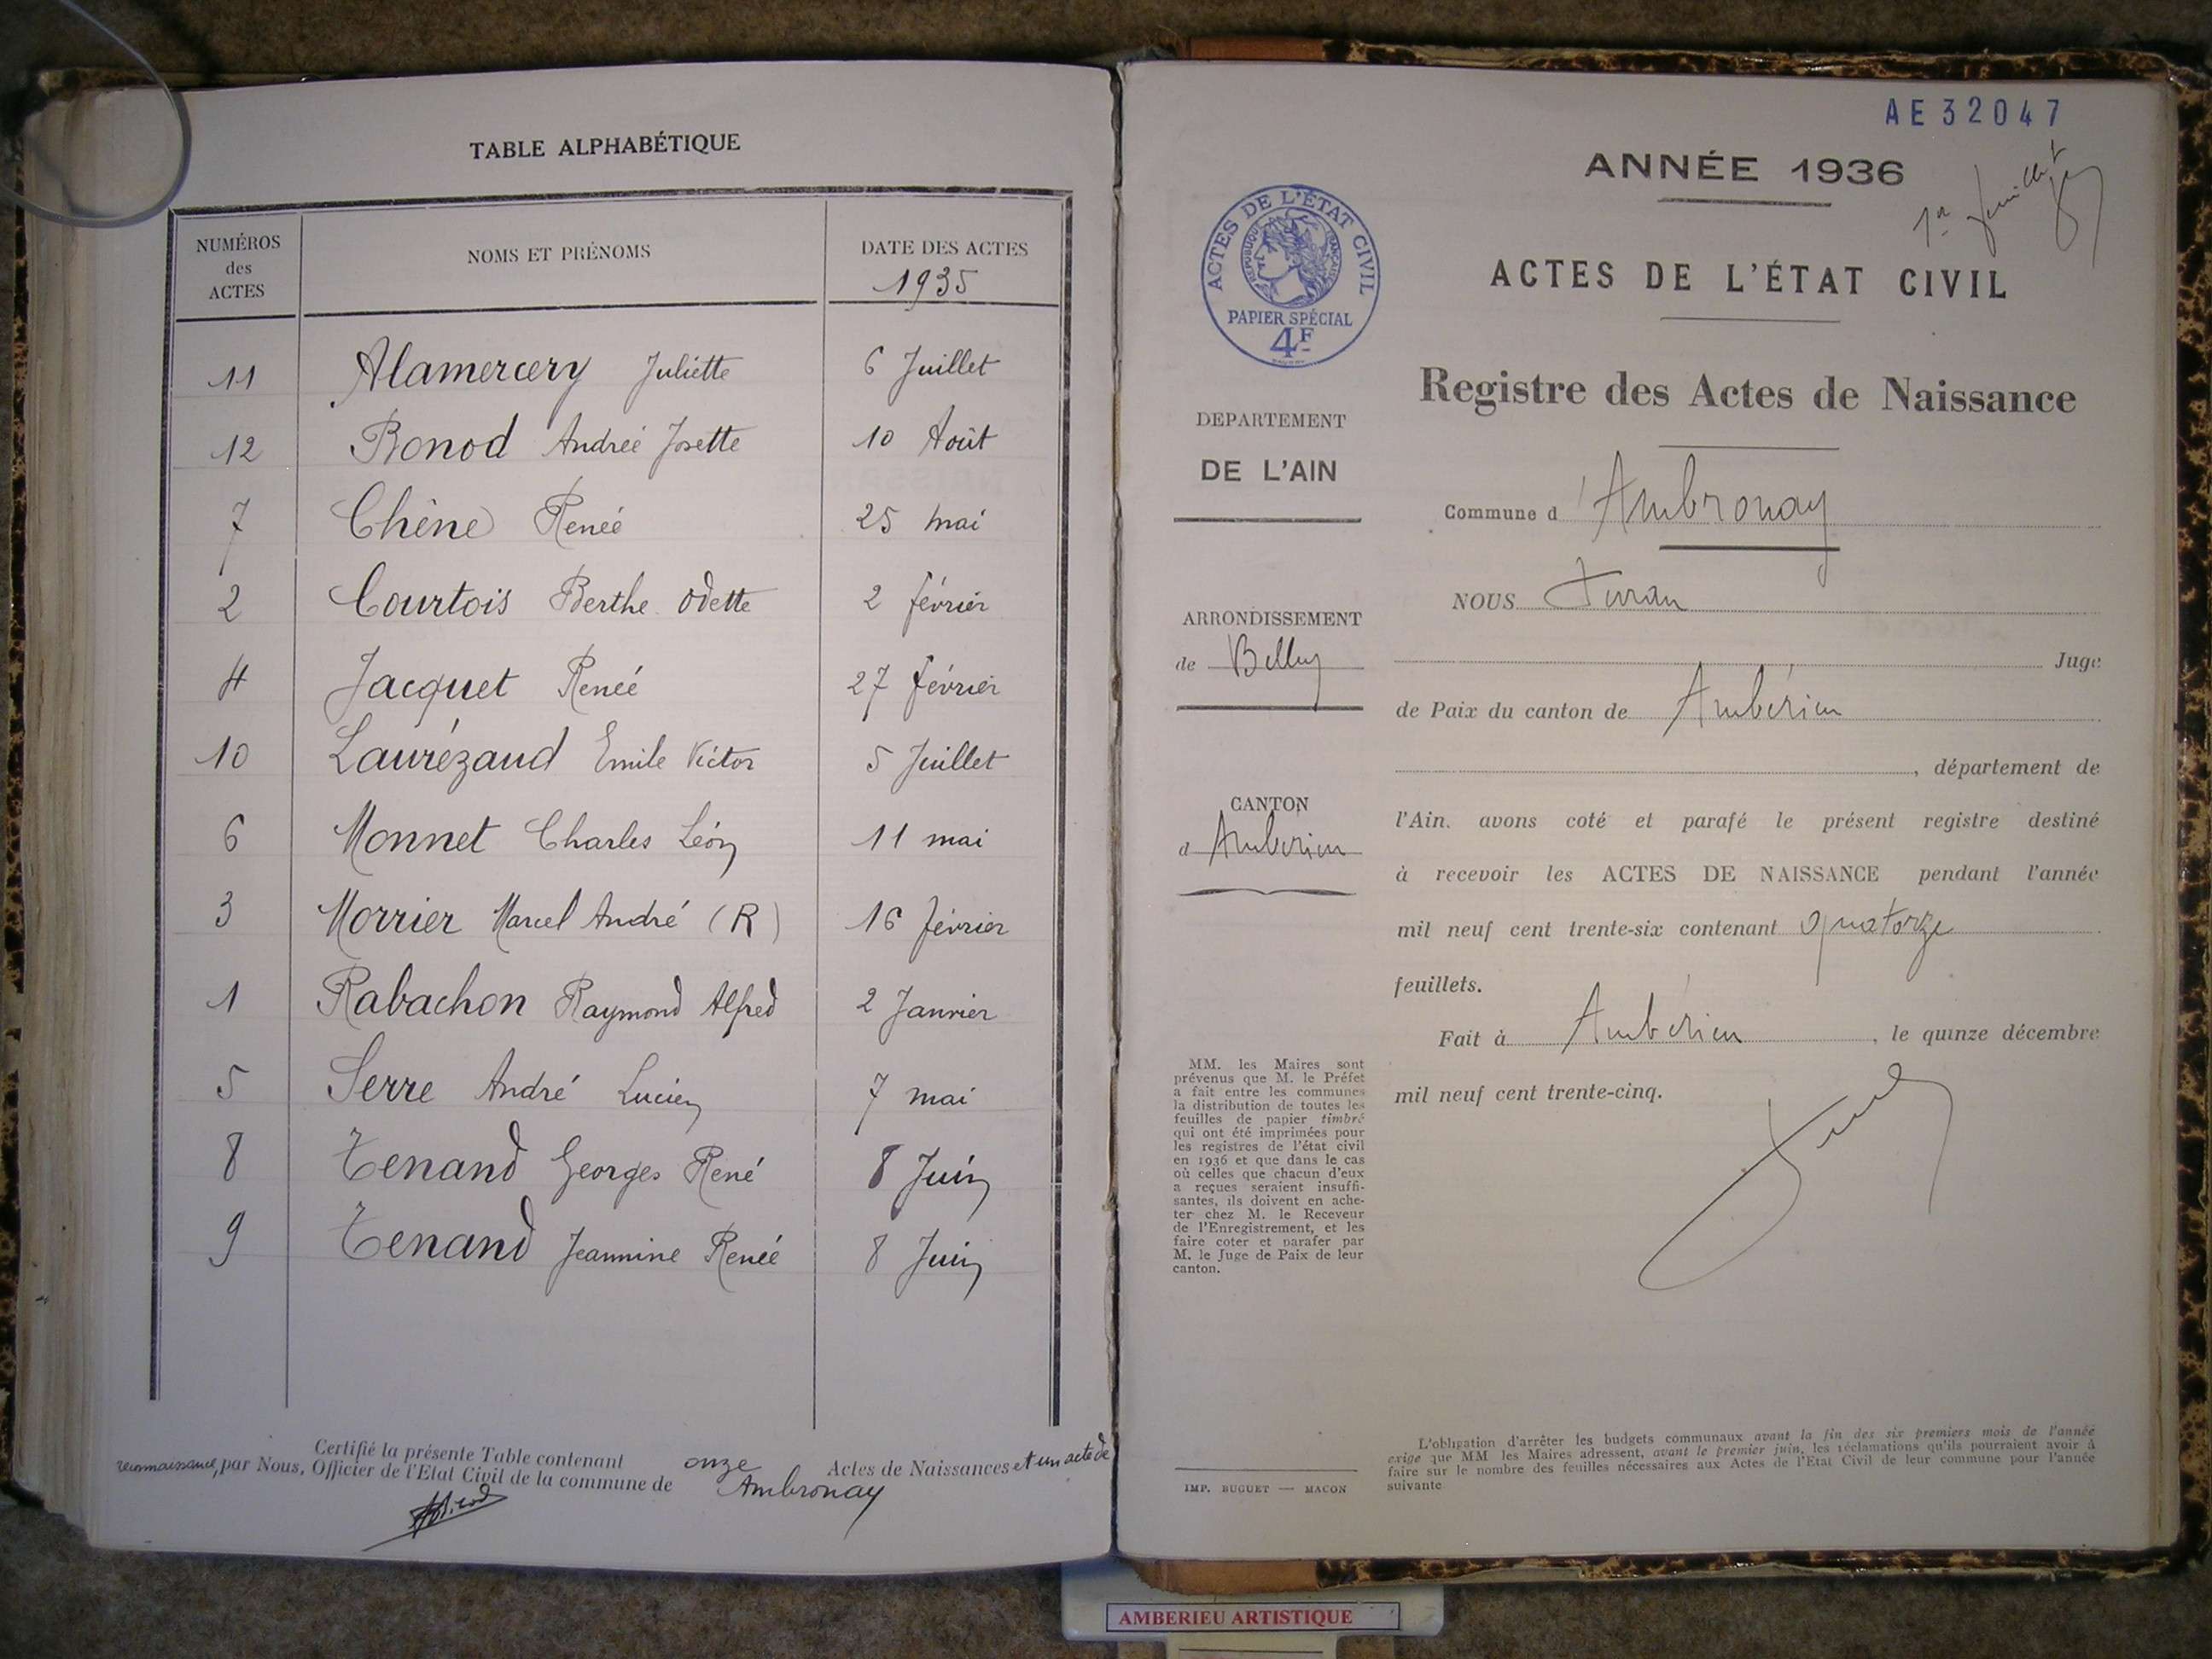 TABLE ALPHABÉTIQUE
NUMÉROS des ACTES NOMS ET PRÉNOMS DATE DES ACTES 1935
11 Alamercery Juliette 6 Juillet
12 Bonod Andreé Josette 10 Août
7 Chêne Reneé 25 mai
2 Courtois Berthe Odette 2 février
4 Jacquet Reneé 27 février
10 Laurézaud Emile Victor 5 Juillet
6 Monnet Charles Léon 11 mai
3 Morrier Marcel André (R) 16 février
1 Rabachon Raymond Alfred 2 Janvier
5 Serre André Lucien 7 mai
8 Tenand Georges René 8 Juin
9 Tenand Jeannine Reneé 8 Juin
Certifié la présente Table contenant onze Actes de Naissances et un acte de
reconnaissance, par Nous, Officier de l'Etat Civil de la commune de Ambronay
AE32047
ANNÉE 1936
1er feuillet
ACTES DE L'ÉTAT CIVIL
RÉPUBLIQUE FRANÇAISE
PAPIER SPÉCIAL
4F
ACTES DE L'ÉTAT CIVIL
Registre des Actes de Naissance
DEPARTEMENT
DE L'AIN
Commune d'Ambronay
ARRONDISSEMENT
de Belley
CANTON
d Ambérieu
NOUS
Juge
de Paix du canton de Ambérieu
, département de
l'Ain. avons coté et parafé le présent registre destiné
à recevoir les ACTES DE NAISSANCE pendant l'année
mil neuf cent trente-six contenant quatorze
feuillets.
Fait à Ambérieu, le quinze décembre
mil neuf cent trente-cinq.
MM. les Maires sont
prévenus que M. le Préfet
a fait entre les communes
la distribution de toutes les
feuilles de papier timbré
qui ont été imprimées pour
les registres de l'état civil
en 1936 et que dans le cas
où celles que chacun d'eux
a reçues seraient insuffi-
santes, ils doivent en ache-
ter chez M. le Receveur
de l'Enregistrement, et les
faire coter et parafer par
M. le Juge de Paix de leur
canton.
IMP. BUGUET — MACON
L'obligation d'arrêter les budgets communaux avant la fin des six premiers mois de l'année
exige que MM les Maires adressent, avant le premier juin, les réclamations qu'ils pourraient avoir à
faire sur le nombre des feuilles nécessaires aux Actes de l'Etat Civil de leur commune pour l'année
suivante
AMBERIEU ARTISTIQUE